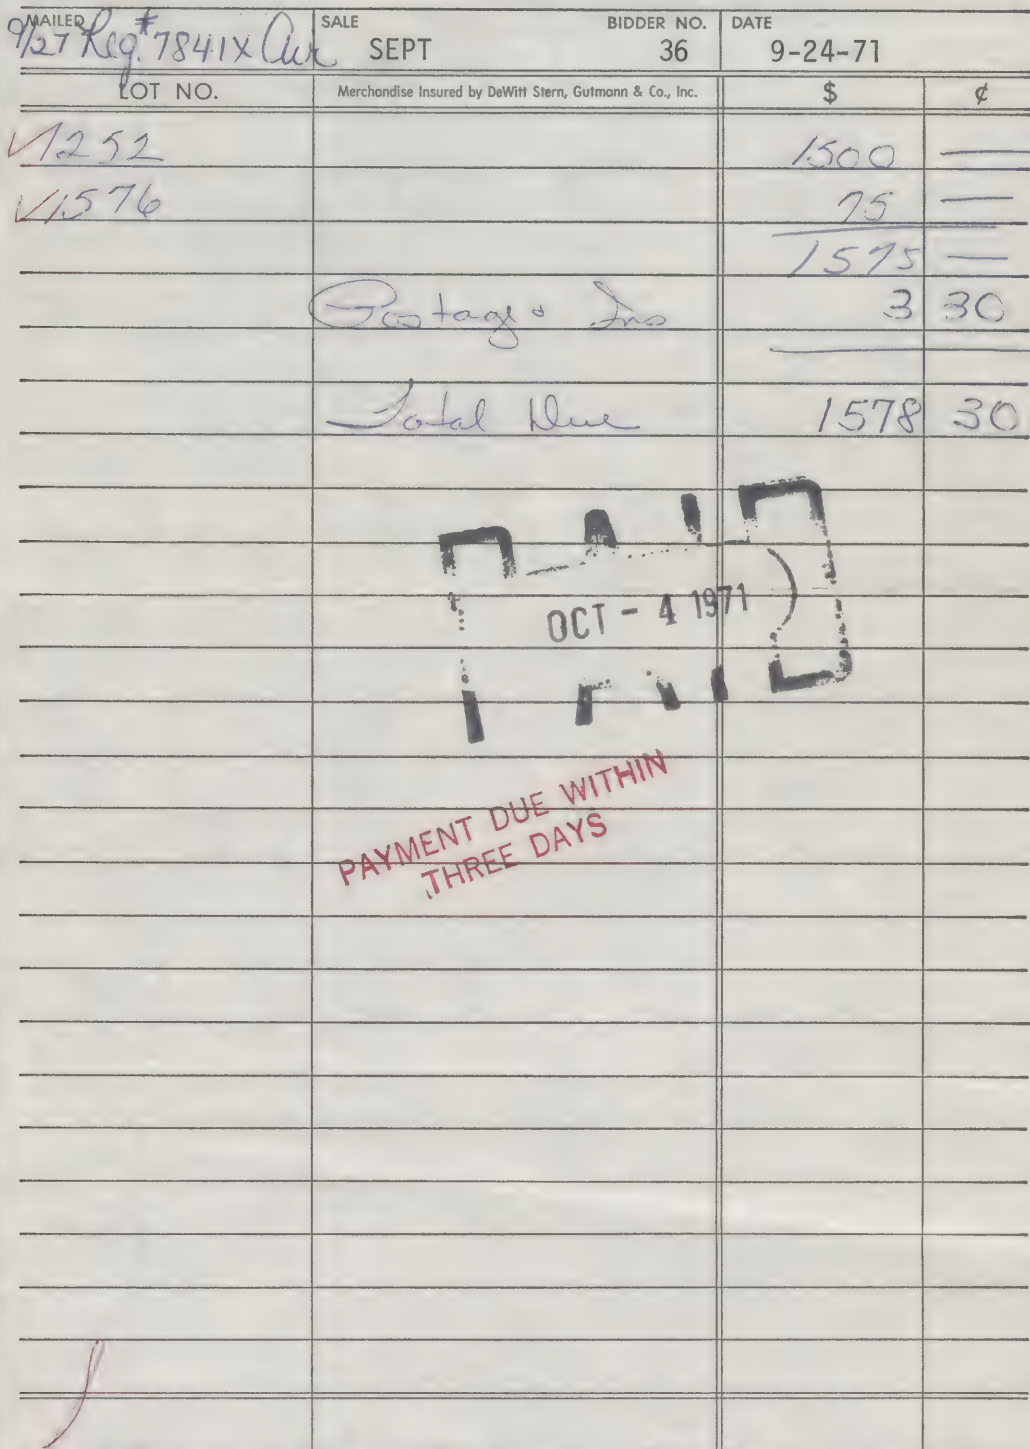 MAILED SALE BIDDER NO. DATE
9/27 Reg.# 7841X Air SEPT 36 9-24-71
LOT NO. Merchandise Insured by DeWitt Stern, Gutmann & Co., Inc. $ ¢
1252 1500 —
1576 75 —
1575 —
Postage & Ins 3 30
Total Due 1578 30
PAID
OCT - 4 1971
PAYMENT DUE WITHIN
THREE DAYS